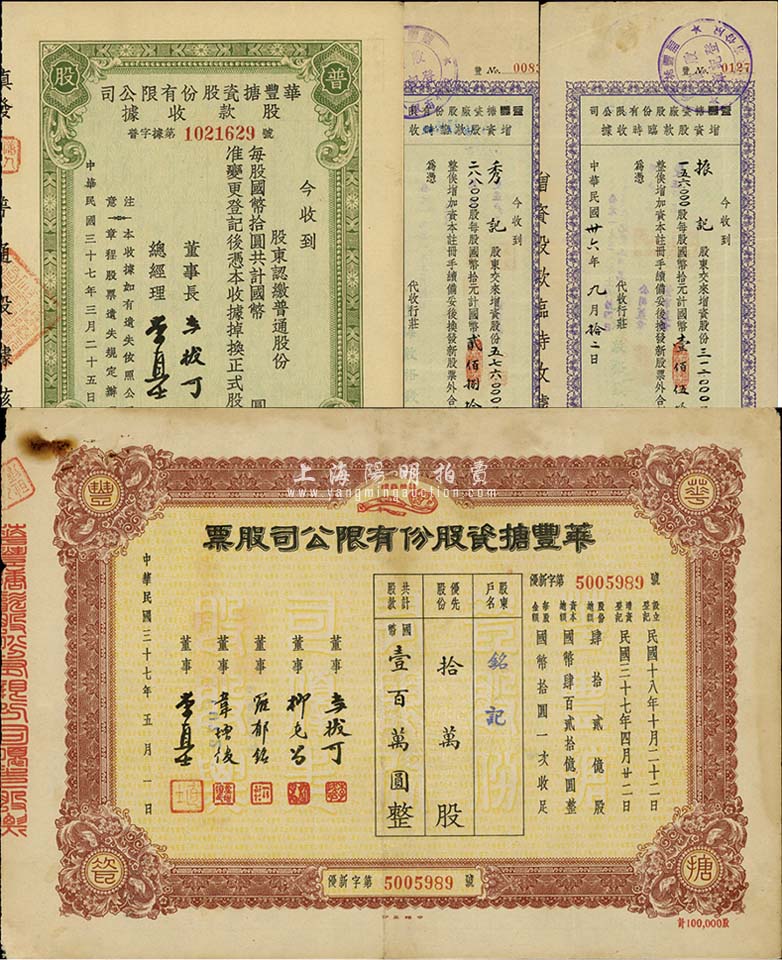 股
普
華豐搪瓷股份有限公司
股款收據
普字據第 1021629 號
今收到
股東認繳普通股份
每股國幣拾圓共計國幣 圓
准變更登記後憑本收據掉換正式股
董事長 李拔可
總經理 李直士
注意 一本收據如有遺失依照公
一章程股票遺失規定辦
中華民國三十七年三月二十五日
豐 No. 008
增資股款臨時收
今收到
秀記 股東交來增資股份五七六000
二八八000股每股國幣拾元計國幣貳佰捌拾
整俟增加資本註冊手續備妥後換發新股票外合
為憑
代收行莊
增資股款臨時收據
豐 No. 0127
華豐搪瓷廠股份有限公司
增資股款臨時收據
今收到
振記 股東交來增資股份三一二000
一五六000股每股國幣拾元計國幣壹佰伍拾
整俟增加資本註冊手續備妥後換發新股票外合
為憑
代收行莊
中華民國卅六年九月拾二日
上海陽明拍賣
www.yangmingauction.com
豐
華
華豐搪瓷股份有限公司股票
優新字第 5005989 號
設立登記 民國十八年十月二十二日
增資登記 民國三十七年四月廿二日
股份總額 肆拾貳億股
資本總額 國幣肆百貳拾億圓整
每股金額 國幣拾圓一次收足
股東戶名 銘記
優先股份 拾萬股
共計股款 國幣壹百萬圓整
董事 李拔可
董事
董事 羅郁銘
董事
董事 李直士
中華民國三十七年五月一日
瓷
搪
優新字第 5005989 號
計100,000股